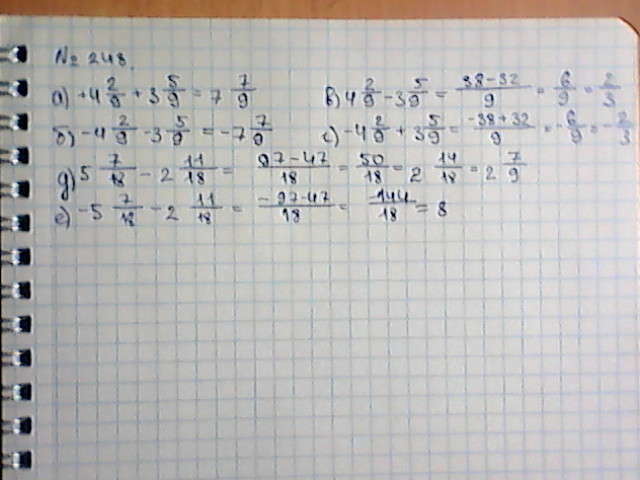 № 248.
а) +4 2/9 + 3 5/9 = 7 7/9
в) 4 2/9 - 3 5/9 = 38-32/9 = 6/9 = 2/3
б) -4 2/9 - 3 5/9 = -7 7/9
г) -4 2/9 + 3 5/9 = -38+32/9 = -6/9 = -2/3
д) 5 7/18 - 2 11/18 = 97-47/18 = 50/18 = 2 14/18 = 2 7/9
е) -5 7/18 - 2 11/18 = -97-47/18 = -144/18 = 8